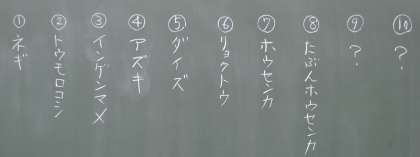 ① ネギ
② トウモロコシ
③ インゲンマメ
④ アズキ
⑤ ダイズ
⑥ リョクトウ
⑦ ホウセンカ
⑧ たぶんホウセンカ
⑨ ?
⑩ ?